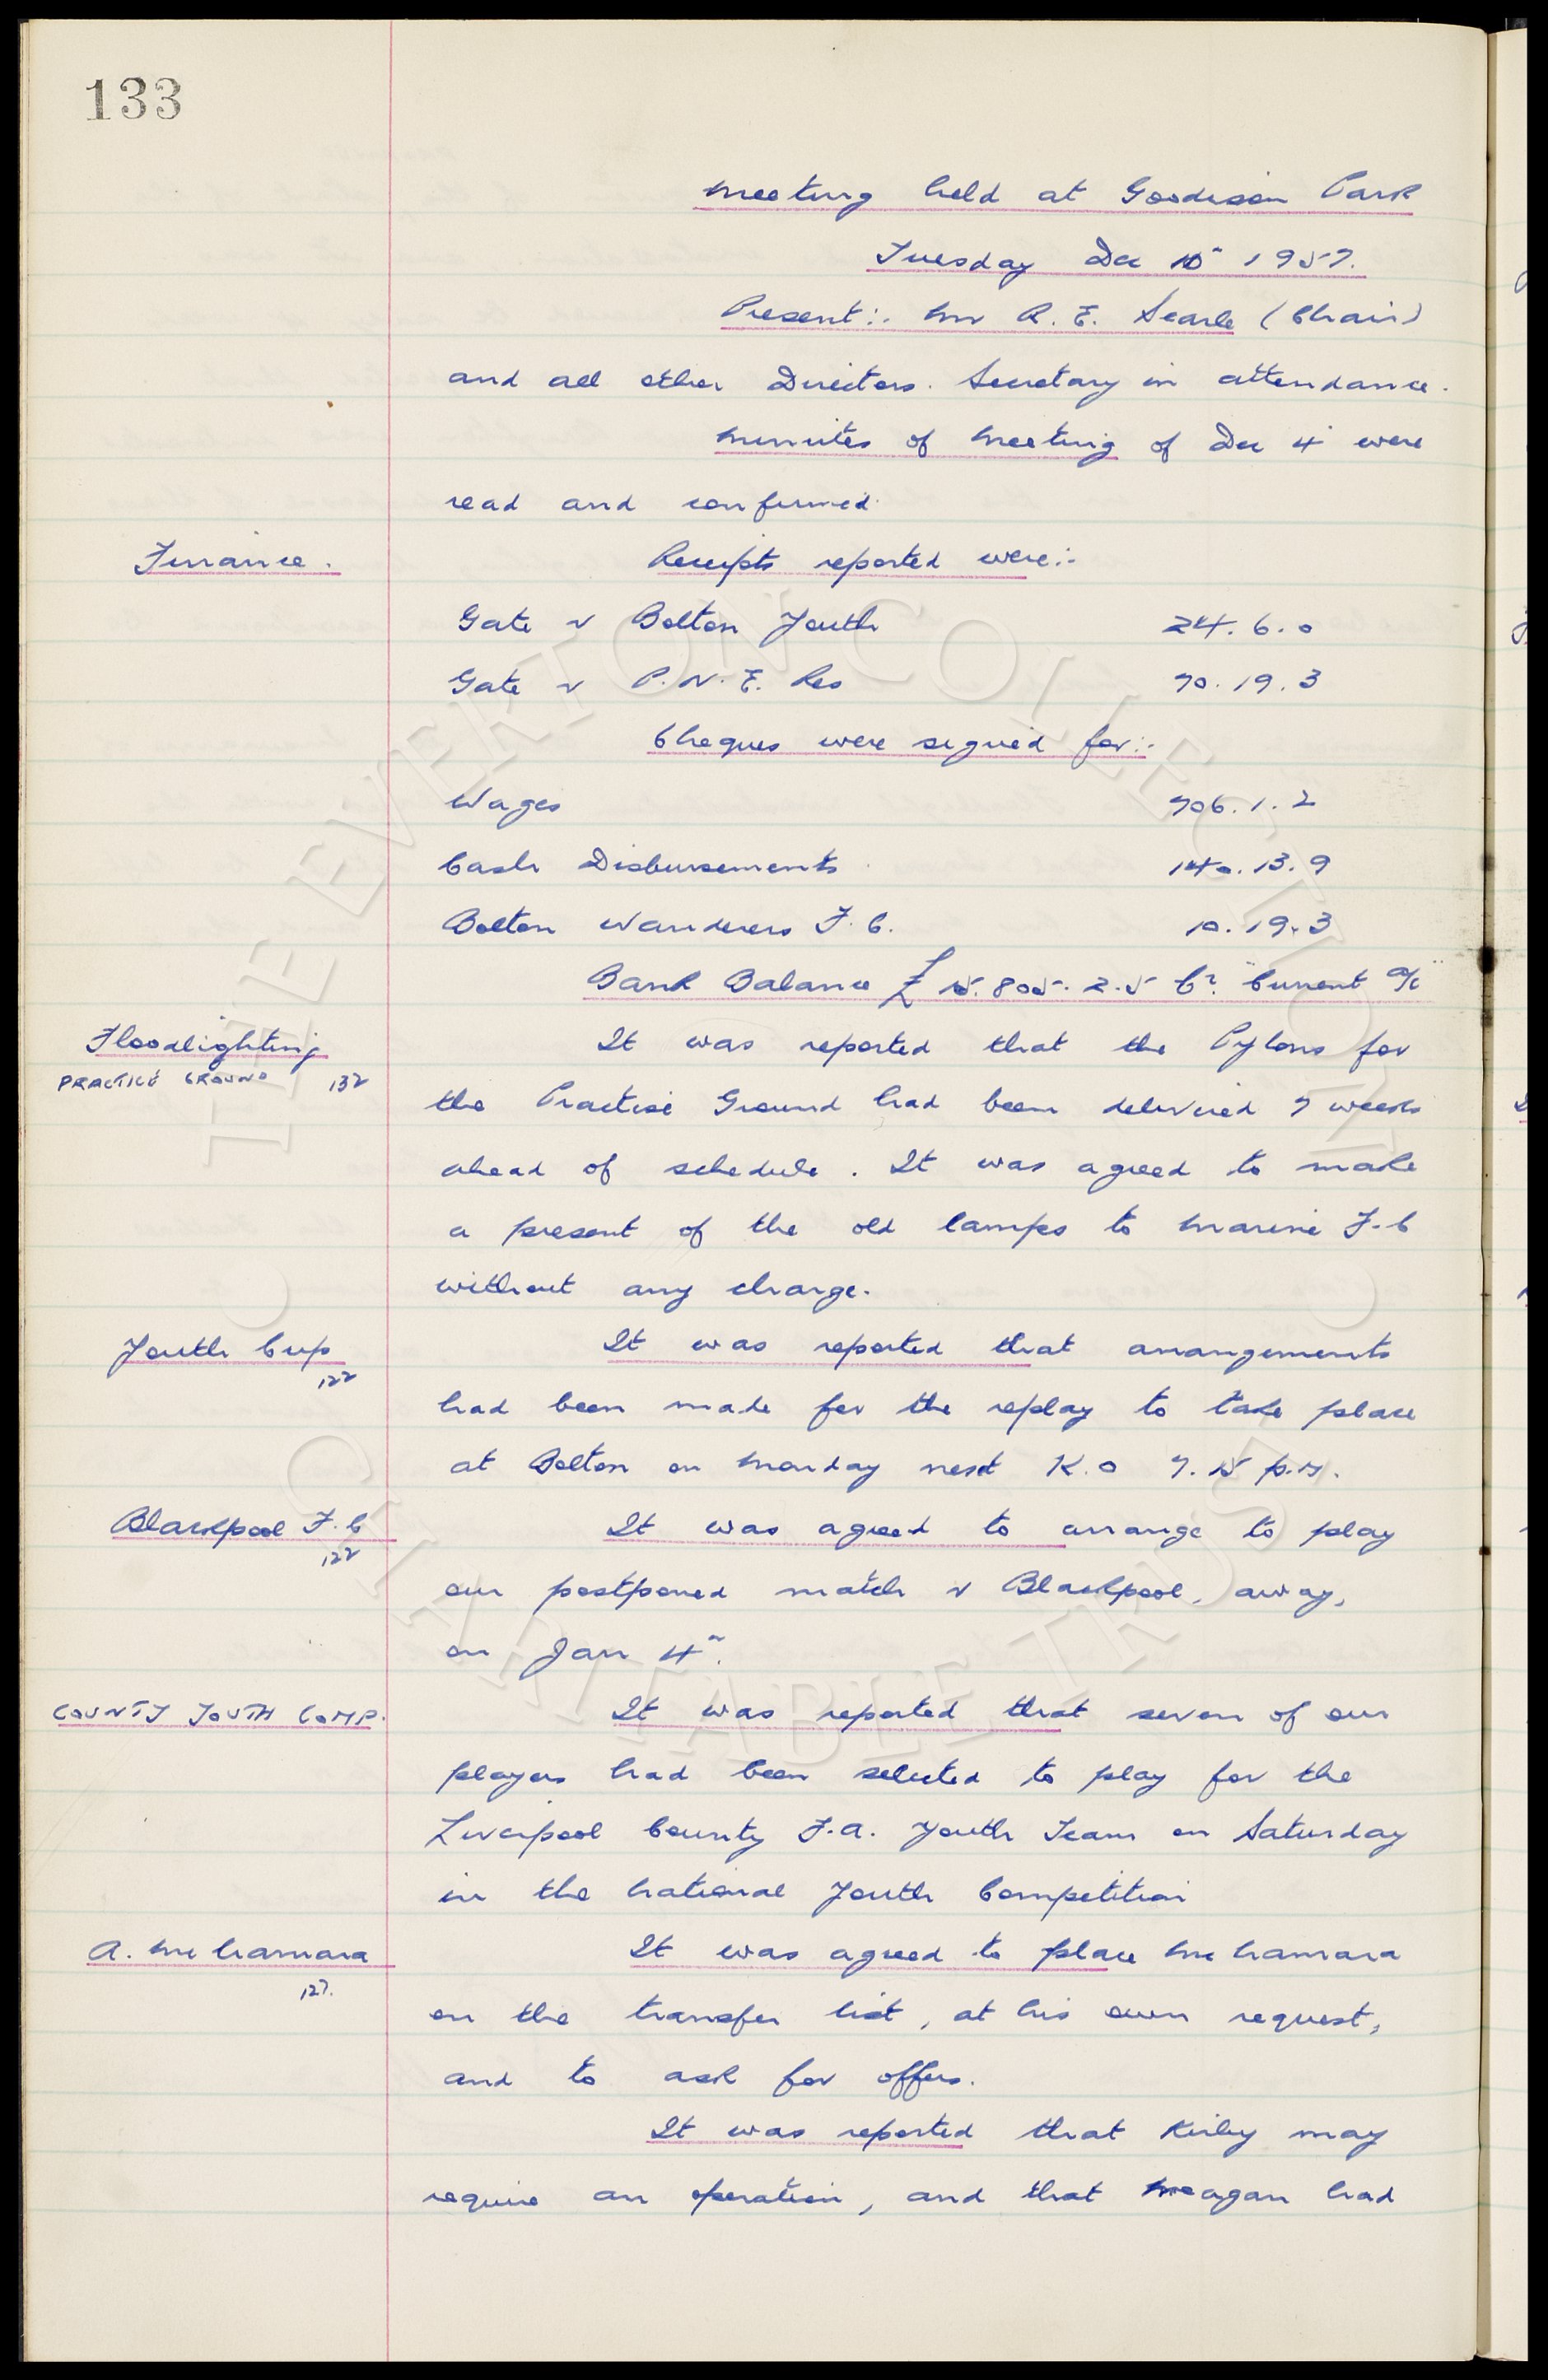 133
Meeting held at Goodison Park
Tuesday Dec 10" 1957.
Present:- Mr R. E. Searle (Chair)
and all other Directors. Secretary in attendance.
Minutes of Meeting of Dec 4" were
read and confirmed.
Finance.
Receipts reported were:-
Gate v Bolton Youth 24. 6. 0
Gate v P. N. E. Res 70. 19. 3
Cheques were signed for:-
Wages 706. 1. 2
Cash Disbursements 140. 13. 9
Bolton Wanderers F. C. 10. 19. 3
Bank Balance £ 15. 805. 2. 5 Cr. "Current a/c"
Floodlighting
PRACTICE GROUND 132
It was reported that the Pylons for
the Practise Ground had been delivered 7 weeks
ahead of schedule. It was agreed to make
a present of the old lamps to Marine F.C
without any charge.
Youth Cup
122
It was reported that arrangements
had been made for the replay to take place
at Bolton on Monday next K.O 7. 15 p.m.
Blackpool F. C
122
It was agreed to arrange to play
our postponed match v Blackpool, away,
on Jan 4".
COUNTY YOUTH COMP.
It was reported that seven of our
players had been selected to play for the
Liverpool County F.A. Youth Team on Saturday
in the National Youth Competition
A. McNamara
127.
It was agreed to place McNamara
on the transfer list, at his own request,
and to ask for offers.
It was reported that Kirby may
require an operation, and that Meagan had
THE EVERTON COLLECTION CHARITABLE TRUST